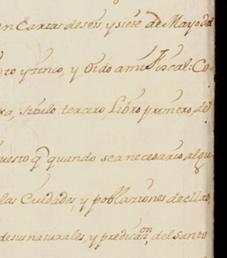 en Cartas de seis, y siete de Mayo del
y cinco, y Oido a mi Fiscal: Co
titulo tercero Libro primero del
puesto q.e quando sea necesario algu
las Ciudades, y poblaciones de ellas
de sus naturales, y predicaz.on del Santo